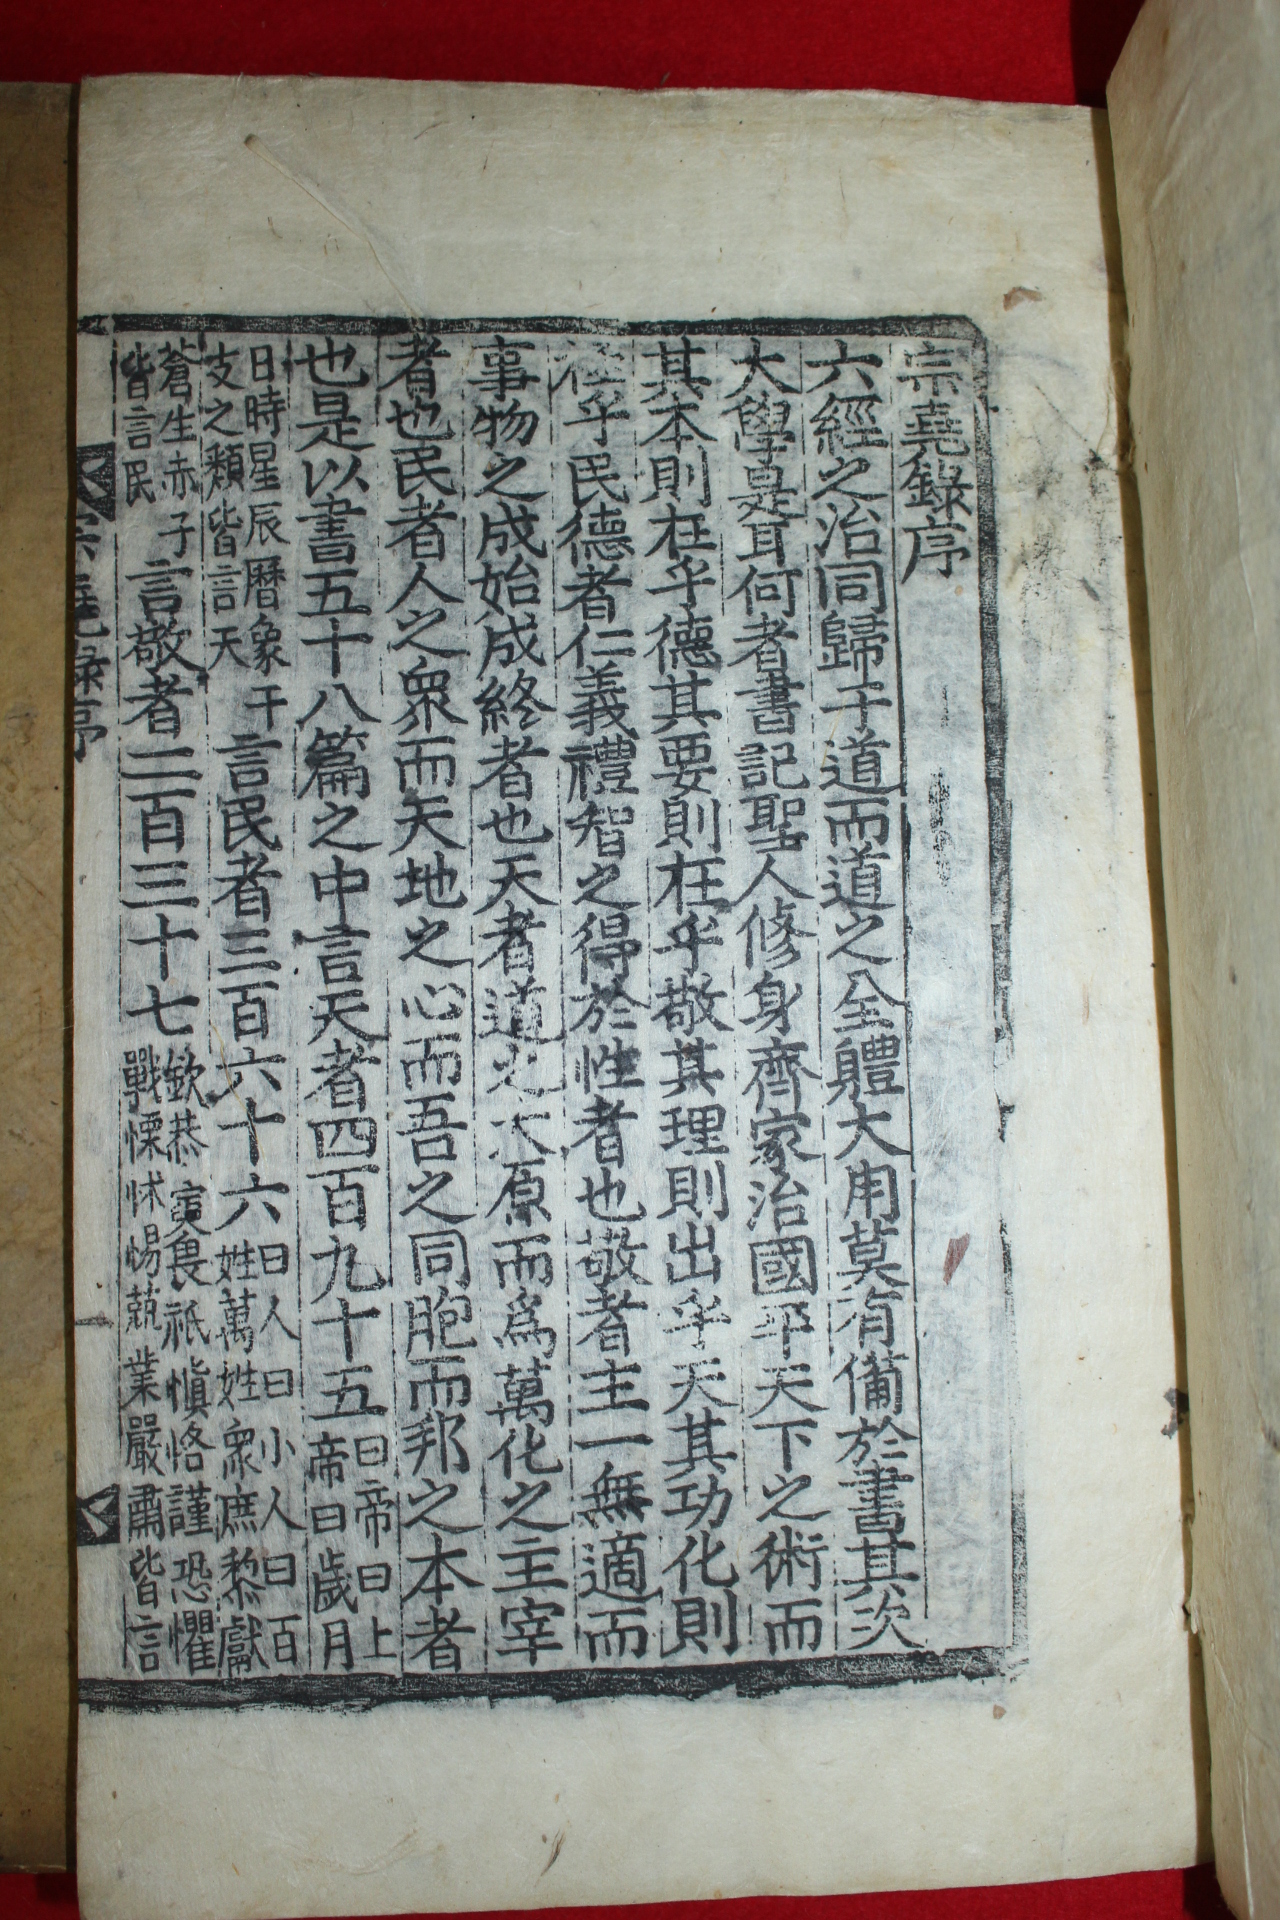 宗堯錄序
六經之治同歸于道而道之全體大用莫有備於書其次
大學是耳何者書記聖人修身齊家治國平天下之術而
其本則在乎德其要則在乎敬其理則出乎天其功化則
極乎民德者仁義禮智之得於性者也敬者主一無適而
事物之成始成終者也天者道之大原而爲萬化之主宰
者也民者人之衆而天地之心而吾之同胞而邦之本者
也是以書五十八篇之中言天者四百九十五曰帝曰上帝曰歲月
日時星辰曆象干支之類皆言天言民者三百六十六曰人曰小人曰百姓萬姓衆庶黎獻
蒼生赤子皆言民言敬者二百三十七欽恭寅畏祇愼恪謹恐懼戰慄怵惕兢業嚴肅皆言
宗堯錄序
一